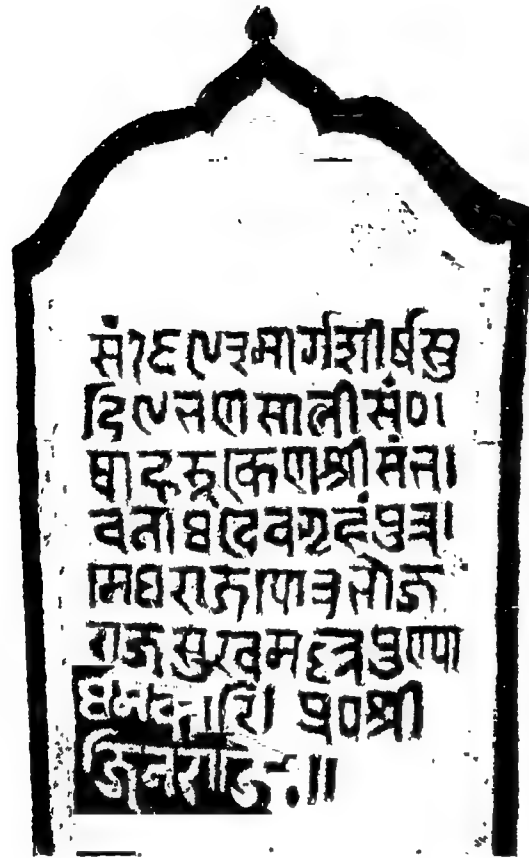 सं१६९३मार्गशीर्षसु
दि ९ भणसाली सं० ।
थाहरूकेण श्रीसंभ।
वनाथदेवगृहं पुत्र।
मेघराज पौत्र भोज
राज सुखमल्ल पुण्या
र्थमकारि। प्र० श्री
जिनराजैः ॥